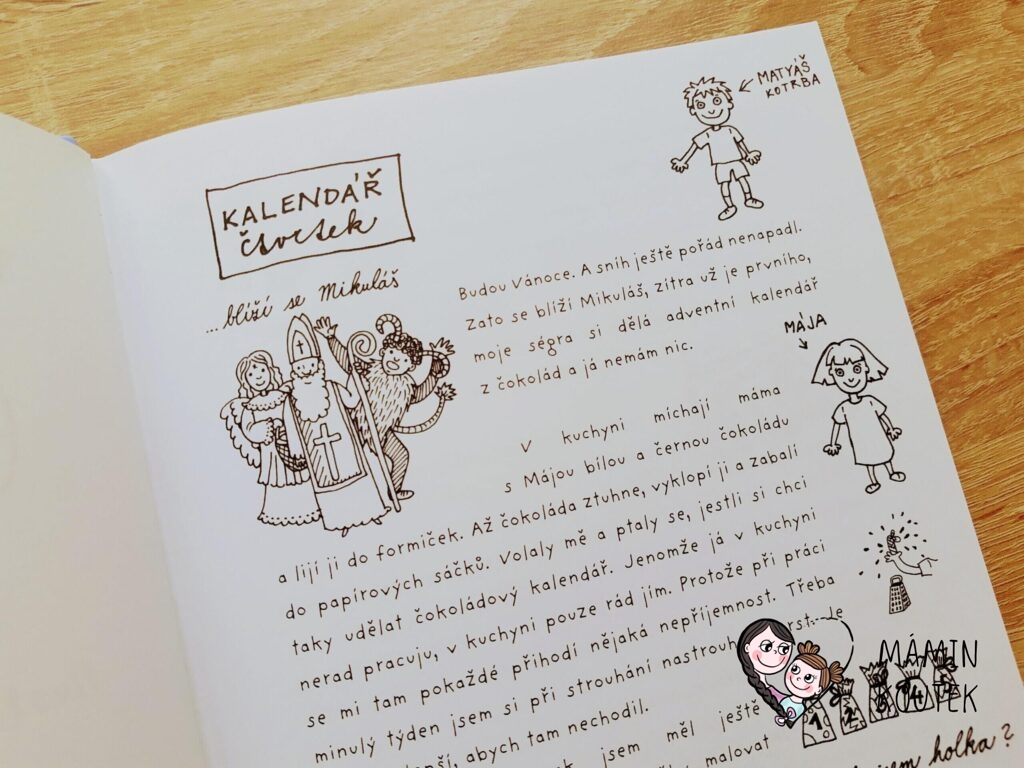 MATYÁŠ
KOTRBA
KALENDÁŘ
čtvrtek
...blíží se Mikuláš
Budou Vánoce. A sníh ještě pořád nenapadl.
Zato se blíží Mikuláš, zítra už je prvního,
moje ségra si dělá adventní kalendář
z čokolád a já nemám nic.
MÁJA
V kuchyni míchají máma
s Májou bílou a černou čokoládu
a lijí ji do formiček. Až čokoláda ztuhne, vyklopí ji a zabalí
do papírových sáčků. Volaly mě a ptaly se, jestli si chci
taky udělat čokoládový kalendář. Jenomže já v kuchyni
nerad pracuju, v kuchyni pouze rád jím. Protože při práci
se mi tam pokaždé přihodí nějaká nepříjemnost. Třeba
minulý týden jsem si při strouhání
abych tam nechodil.
jsem měl ještě
malovat
holka?
MÁMIN
KOUTEK
1 2 3 4 5